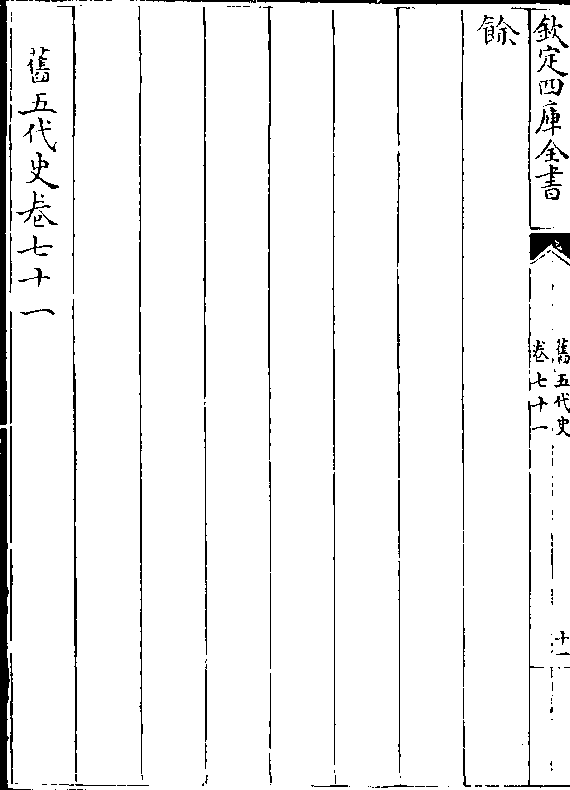 欽定四庫全書
舊五代史
卷七十一
十一
餘
舊五代史卷七十一